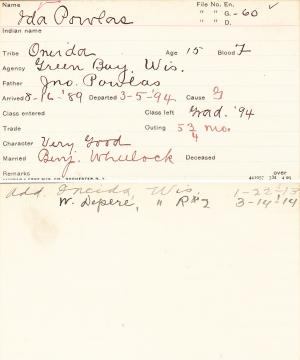 Name File No. En.
Ida Powlas " " G.-60
Indian name " " D.
Tribe Oneida Age 15 Blood F
Agency Green Bay, Wis.
Father Jno. Powlas
Arrived 8-16-'89 Departed 3-5-'94 Cause G
Class entered Class left Grad. '94
Trade Outing 53 mo.
Character Very Good
Married Benj. Wheelock Deceased
Remarks over
add. Oneida, Wis. 1-22-'13
W. Depere, " R#2 3-14-'14